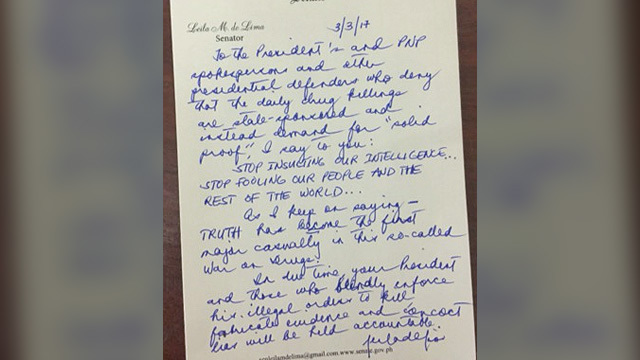 Leila M. de Lima
Senator
3/3/17
To the President's and PNP
spokespersons and other
presidential defenders who deny
that the daily drug killings
are state-sponsored and
instead demand for "solid
proof", I say to you:
STOP INSULTING OUR INTELLIGENCE...
STOP FOOLING OUR PEOPLE AND THE
REST OF THE WORLD...
As I keep on saying —
TRUTH has become the first
major casualty in this so-called
War on Drugs.
In due time, your President
and those who blindly enforce
his illegal orders to kill
fabricate evidence and concoct
lies will be held accountable.
www.senate.gov.ph